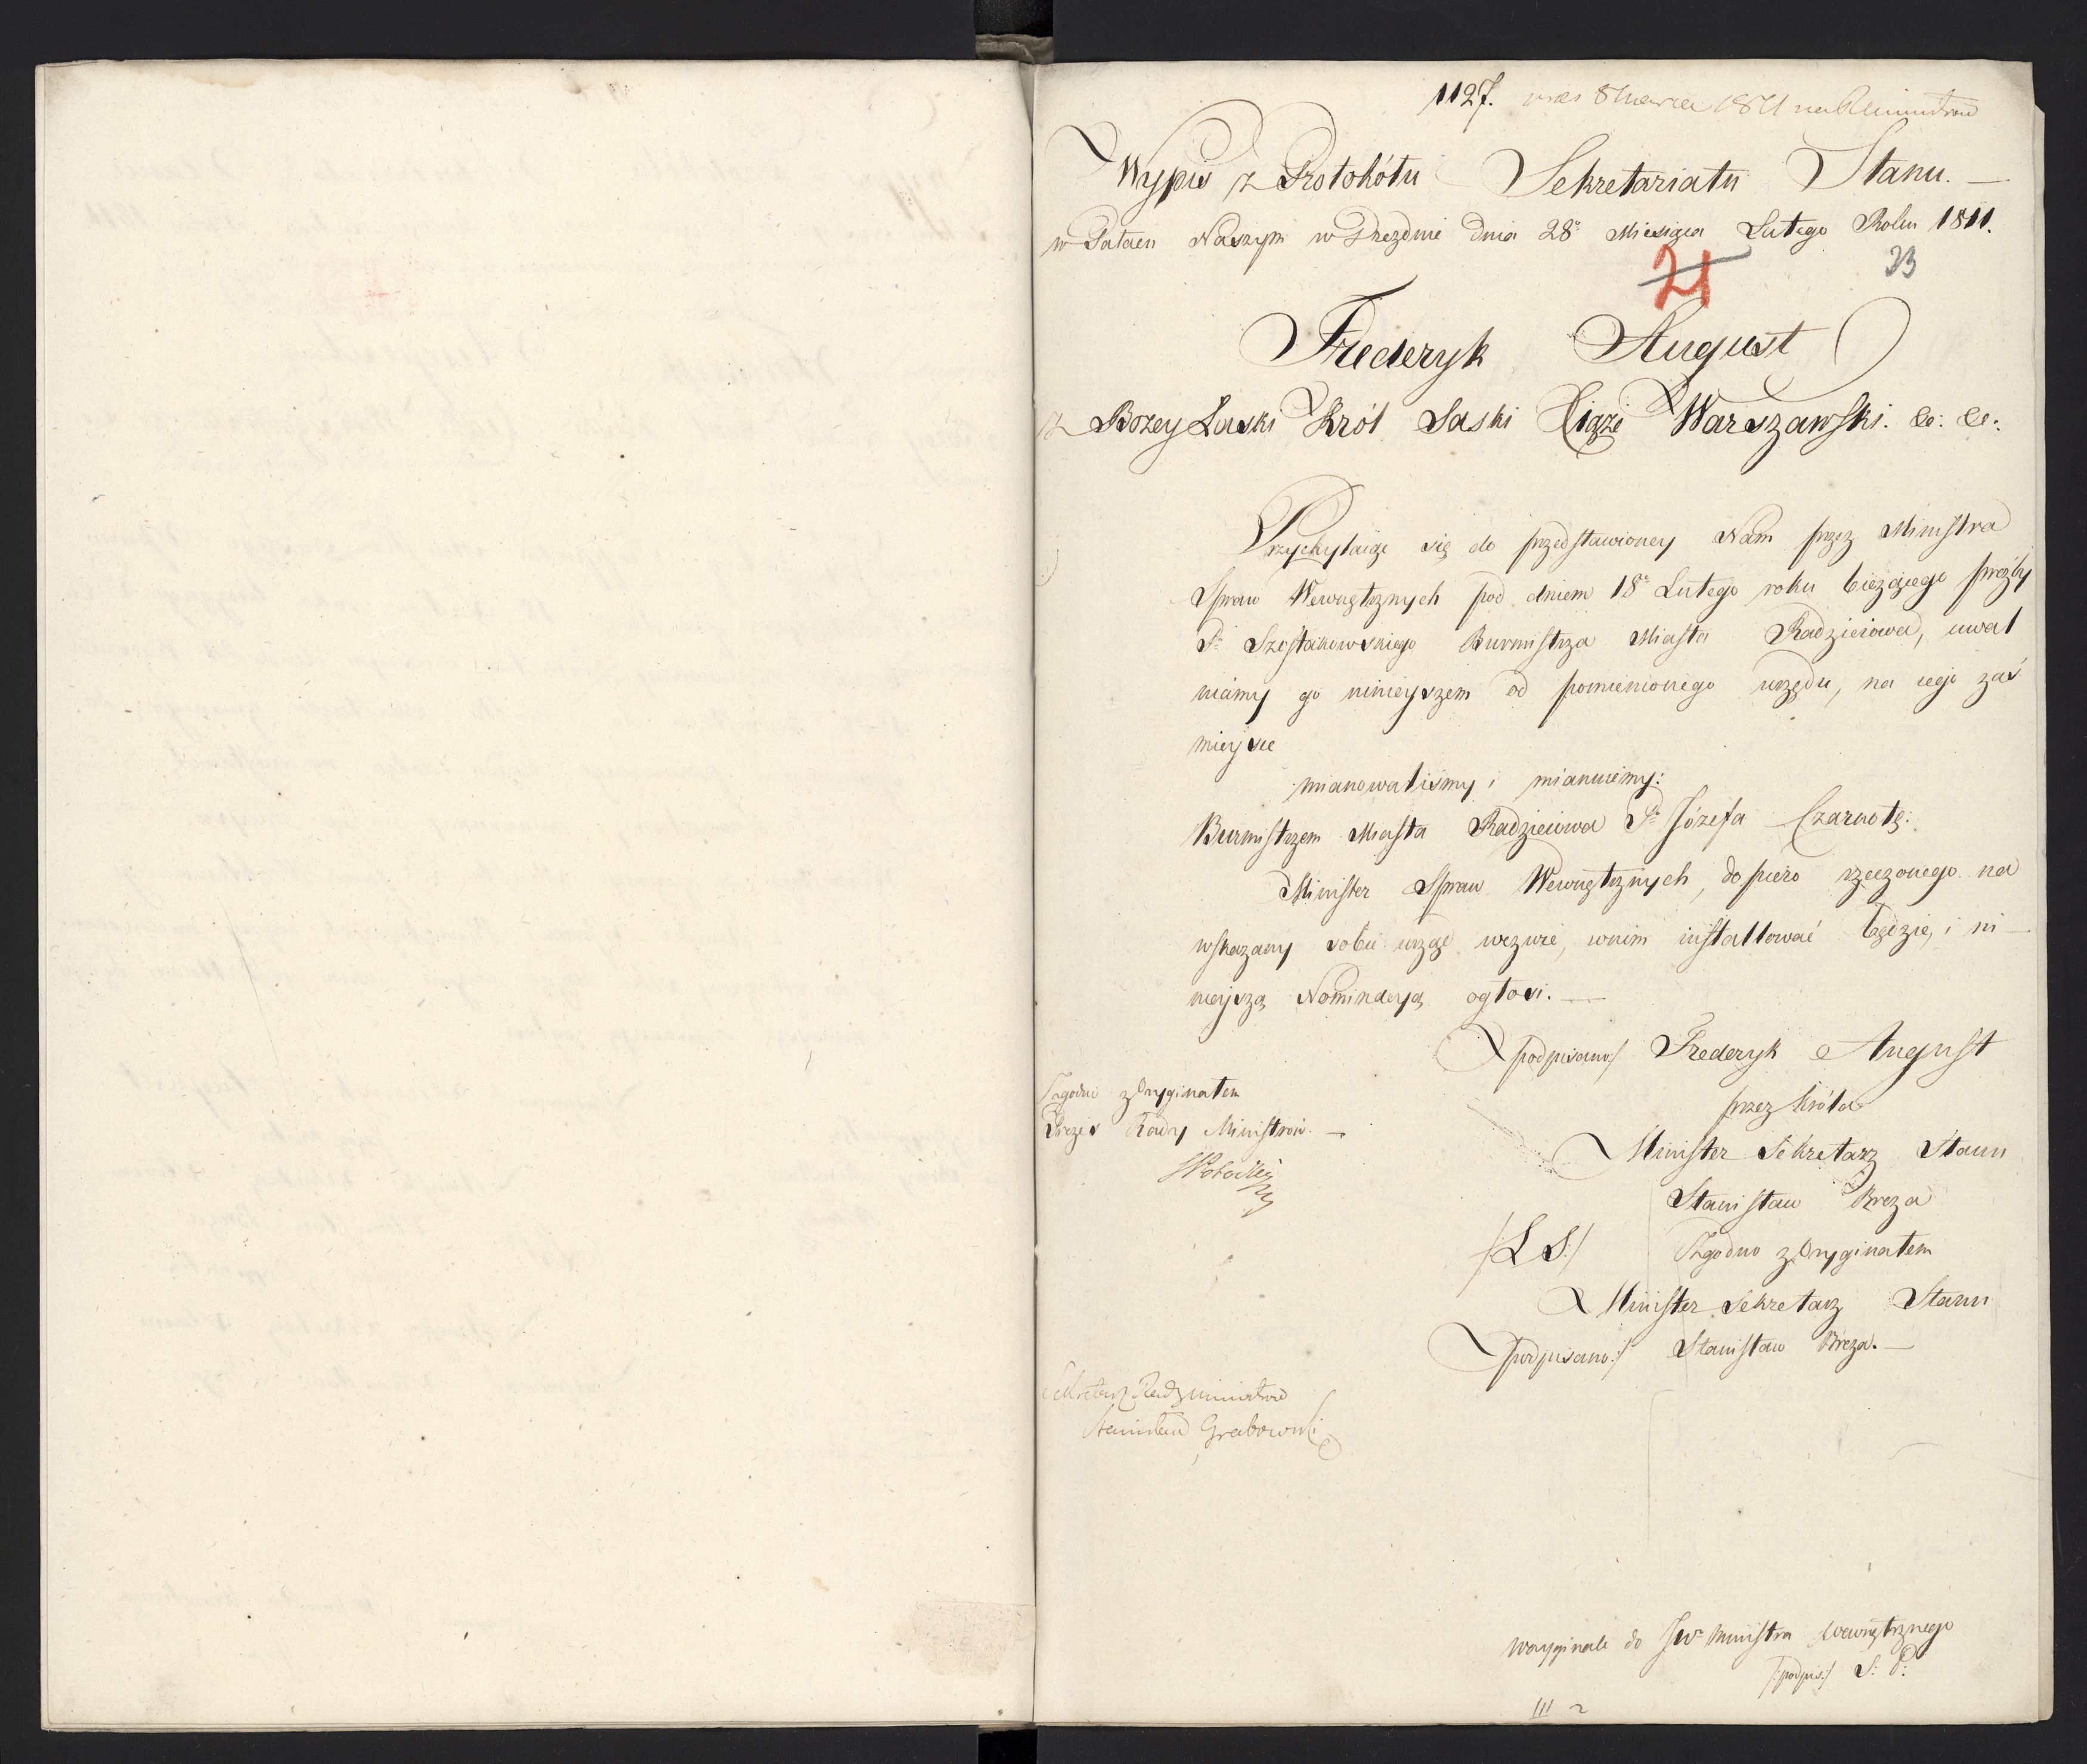 1127. pres 8 Marca 1811 na R Ministrów
Wypis z Protokółu Sekretariatu Stanu. —
w Pałacu Naszym w Dreznie dnia 28º Miesiąca Lutego Roku 1811.
21 23
Frederyk August
z Bożey Łaski Król Saski Xiążę Warszawski. &: &:
Przychylaiąc się do przedstawioney Nam przez Ministra
Spraw Wewnętrznych pod dniem 18º Lutego roku bieżącego prozby
Pª Szostakowskiego Burmistrza Miasta Radzieiowa, uwal
niamy go ninieyszem od pomienionego urzędu, na iego zaś
mieysce
mianowaliśmy i mianuiemy:
Burmistrzem Miasta Radzieiowa Pª Józefa Czarnotę:
Minister Spraw Wewnętrznych, dopiero rzeczonego na
wskazany sobie urząd wezwie, w nim installować będzie, i ni—
nieyszą Nominacyą ogłosi. —
/podpisano:/ Frederyk August
przez Króla
Minister Sekretarz Stanu
Stanisław Breza
/L S:/ Zgodno z Oryginałem
Minister Sekretarz Stanu
/podpisano:/ Stanisław Breza. —
Zgodno z Oryginałem
Prezes Rady Ministrów. —
SPotocki
Sekretarz Rady Ministrów
Stanisław Grabowski
w oryginale do JWº Ministra Wewnętrznego
/:podpis:/ S: P:
III